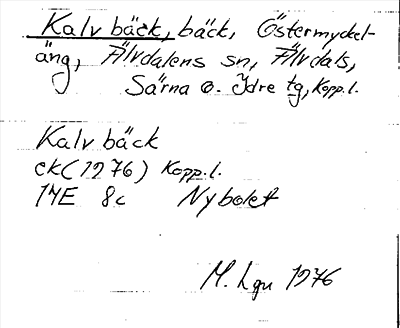 Kalv bäck, bäck, Östermyckel-
äng, Älvdalens sn, Älvdals,
Särna o. Idre tg, Kopp.l.
Kalv bäck
ek (1976) Kopp.l.
14E 8c Nybolet
M. Lgn 1976